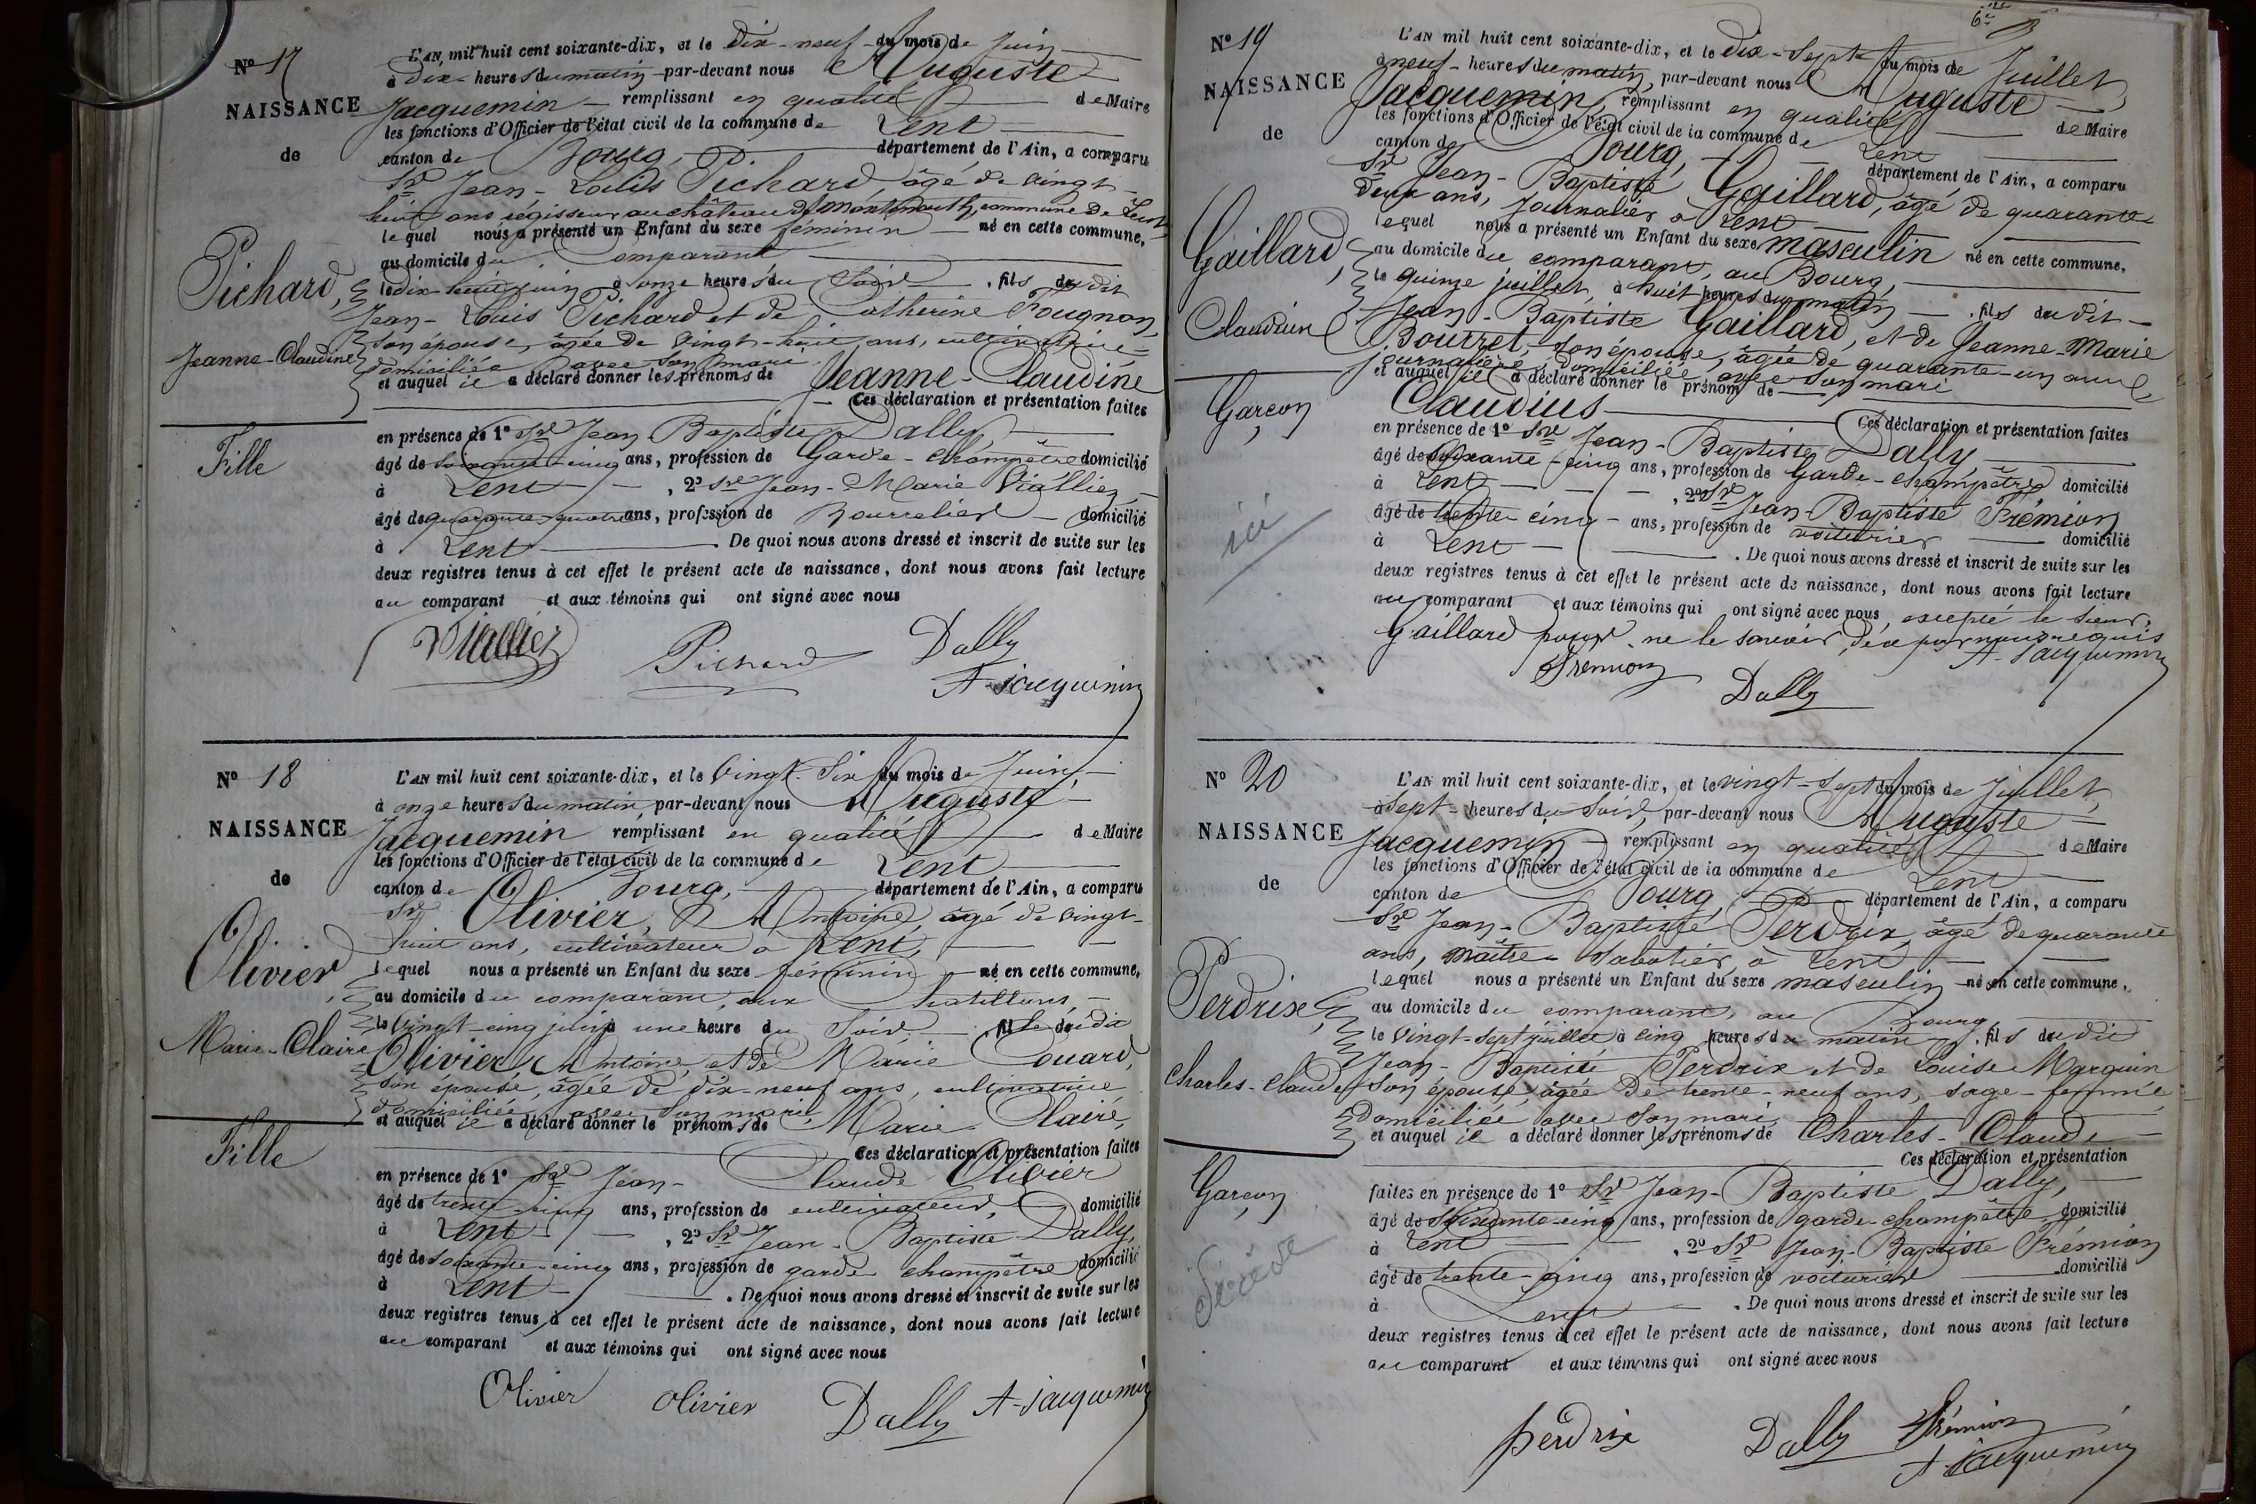 N° 17
NAISSANCE
de
Pichard,
Jeanne-Claudine
Fille
L'AN mil huit cent soixante-dix, et le dix-neuf du mois de Juin
à dix heures du matin par-devant nous Auguste
Jacquemin remplissant en qualité de Maire
les fonctions d'Officier de l'état civil de la commune de Lent
canton de Bourg, département de l'Ain, a comparu
Sr Jean-Louis Pichard, âgé de vingt-
huit ans régisseur au château de commune de Lent
lequel nous a présenté un Enfant du sexe féminin né en cette commune,
au domicile du Comparant
le dix-huit juin à onze heures du Soir . fils du dit
Jean-Louis Pichard et de Catherine Fougnon,
son épouse, âgée de vingt-huit ans, cultivatrice
domiciliée avec son mari
et auquel il a déclaré donner les prénoms de Jeanne-Claudine
Ces déclaration et présentation faites
en présence de 1° Sr Jean Baptiste Dally,
âgé de soixante-cinq ans, profession de Garde-champêtre domicilié
à Lent , 2° Sr Jean-Marie Viallier,
âgé de quarante-quatre ans, profession de Bourrelier domicilié
à Lent . De quoi nous avons dressé et inscrit de suite sur les
deux registres tenus à cet effet le présent acte de naissance, dont nous avons fait lecture
au comparant et aux témoins qui ont signé avec nous
Viallier Pichard Dally
A. Jacquemin
N° 18
NAISSANCE
de
Olivier,
Marie-Claire
Fille
L'AN mil huit cent soixante-dix, et le Vingt-Six du mois de Juin,
à onze heures du matin par-devant nous Auguste
Jacquemin remplissant en qualité de Maire
les fonctions d'Officier de l'état civil de la commune de Lent
canton de Bourg, département de l'Ain, a comparu
Sr Olivier, Antoine, âgé de vingt-
huit ans, cultivateur à Lent,
lequel nous a présenté un Enfant du sexe féminin né en cette commune,
au domicile du comparant, aux Chatillons,
le vingt-cinq juin à une heure du Soir . fille du dit
Olivier, Antoine, et de Marie Couard,
son épouse, âgée de dix-neuf ans, cultivatrice
domiciliée avec son mari
et auquel il a déclaré donner le prénoms de Marie Claire,
Ces déclaration et présentation faites
en présence de 1° Sr Jean-Claude Olivier
âgé de trente-cinq ans, profession de cultivateur, domicilié
à Lent , 2° Sr Jean-Baptiste Dally,
âgé de soixante-cinq ans, profession de garde champêtre domicilié
à Lent . De quoi nous avons dressé et inscrit de suite sur les
deux registres tenus à cet effet le présent acte de naissance, dont nous avons fait lecture
au comparant et aux témoins qui ont signé avec nous
Olivier olivier Dally A. Jacquemin
N° 19
NAISSANCE
de
Gaillard,
Claudius
Garçon
ici
L'AN mil huit cent soixante-dix, et le Dix-Sept du mois de Juillet,
à neuf heures du matin, par-devant nous Auguste
Jacquemin, remplissant en qualité de Maire
les fonctions d'Officier de l'état civil de la commune de Lent
canton de Bourg, département de l'Ain, a comparu
Sr Jean-Baptiste Gaillard, âgé de quarante-
Deux ans, Journalier à Lent
lequel nous a présenté un Enfant du sexe masculin né en cette commune,
au domicile du comparant, au Bourg,
le quinze juillet à huit heures du matin . fils du dit
Jean-Baptiste Gaillard, et de Jeanne-Marie
Bourret, son épouse, âgée de quarante-un ans
journalière, domiciliée avec son mari
et auquel il a déclaré donner le prénom de
Claudius Ces déclaration et présentation faites
en présence de 1° Sr Jean-Baptiste Dally,
âgé de soixante-cinq ans, profession de Garde-champêtre domicilié
à Lent , 2° Sr Jean-Baptiste Frémion,
âgé de trente-cinq ans, profession de voiturier domicilié
à Lent . De quoi nous avons dressé et inscrit de suite sur les
deux registres tenus à cet effet le présent acte de naissance, dont nous avons fait lecture
au comparant et aux témoins qui ont signé avec nous, excepté le sieur
Gaillard pour ne le savoir, de ce par nous requis
Frémion A. Jacquemin
Dally
N° 20
NAISSANCE
de
Perdrix,
Charles-Claude
Garçon
L'AN mil huit cent soixante-dix, et le vingt-sept du mois de Juillet,
à sept heures du Soir, par-devant nous Auguste
Jacquemin remplissant en qualité de Maire
les fonctions d'Officier de l'état civil de la commune de Lent
canton de Bourg, département de l'Ain, a comparu
Sr Jean-Baptiste Perdrix, âgé de quarante
ans, maître-Sabotier, à Lent
lequel nous a présenté un Enfant du sexe masculin né en cette commune,
au domicile du comparant, au Bourg,
le Vingt-sept juillet à cinq heures du matin . fils du dit
Jean-Baptiste Perdrix et de Louise Marguin
son épouse, âgée de trente-neuf ans, sage-femme
domiciliée avec son mari
et auquel il a déclaré donner les prénoms de Charles-Claude
Ces déclaration et présentation
faites en présence de 1° Sr Jean-Baptiste Dally,
âgé de soixante-cinq ans, profession de garde-champêtre domicilié
à Lent , 2° Sr Jean-Baptiste Frémion
âgé de trente-cinq ans, profession de voiturier domicilié
à Lent . De quoi nous avons dressé et inscrit de suite sur les
deux registres tenus à cet effet le présent acte de naissance, dont nous avons fait lecture
au comparant et aux témoins qui ont signé avec nous
perdrix Dally Frémion
A. Jacquemin